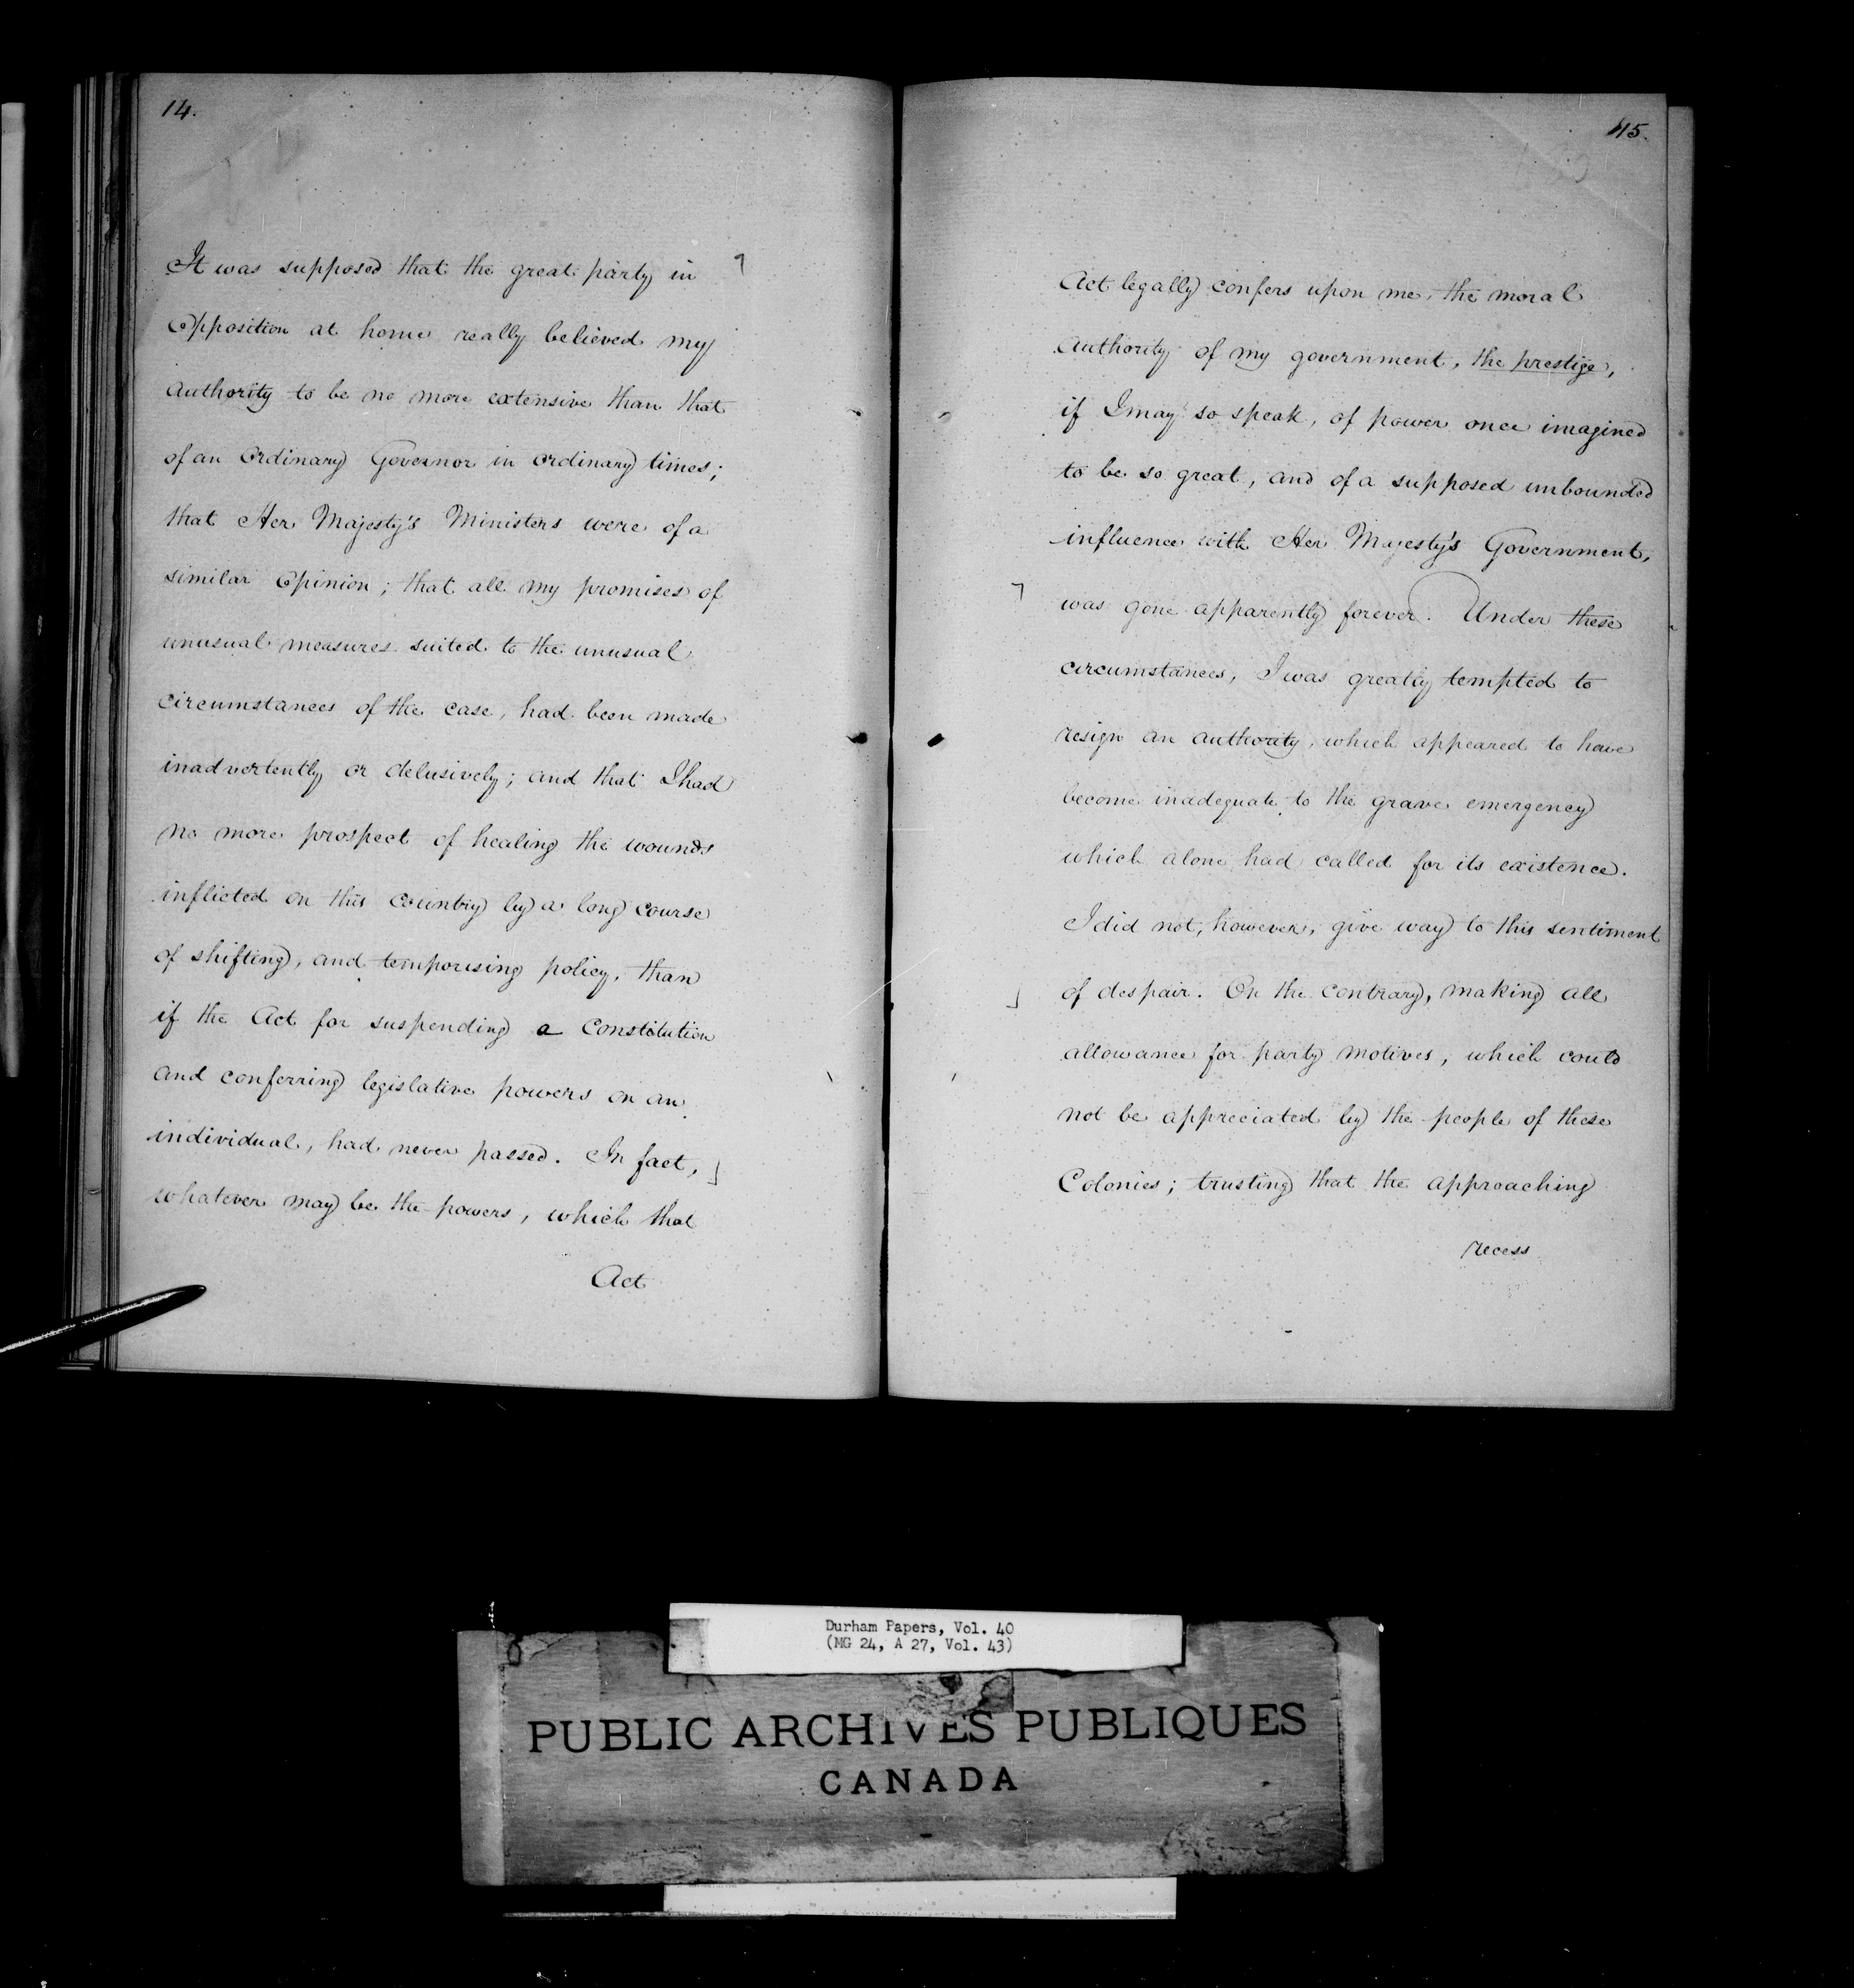 14.
It was supposed that the great party in
Opposition at home really believed my
authority to be no more extensive than that
of an Ordinary Governor in ordinary times;
that Her Majesty's Ministers were of a
similar Opinion; that all my promises of
unusual measures suited to the unusual
circumstances of the case, had been made
inadvertently or delusively; and that I had
no more prospect of healing the wounds
inflicted on this Country by a long course
of shifting, and temporising policy, than
if the Act for suspending a Constitution
and conferring legislative powers on an
individual, had never passed. In fact,
whatever may be the powers, which that
Act
15.
Act legally confers upon me, the moral
authority of my government, the prestige,
if I may so speak, of power once imagined
to be so great, and of a supposed unbounded
influence with Her Majesty's Government,
was gone apparently forever. Under these
circumstances, I was greatly tempted to
resign an authority, which appeared to have
become inadequate to the grave emergency
which alone had called for its existence.
I did not, however, give way to this sentiment
of despair. On the contrary, making all
allowance for party motives, which could
not be appreciated by the people of these
Colonies; trusting that the approaching
recess
Durham Papers, Vol. 40
(MG 24, A 27, Vol. 43)
PUBLIC ARCHIVES PUBLIQUES
CANADA